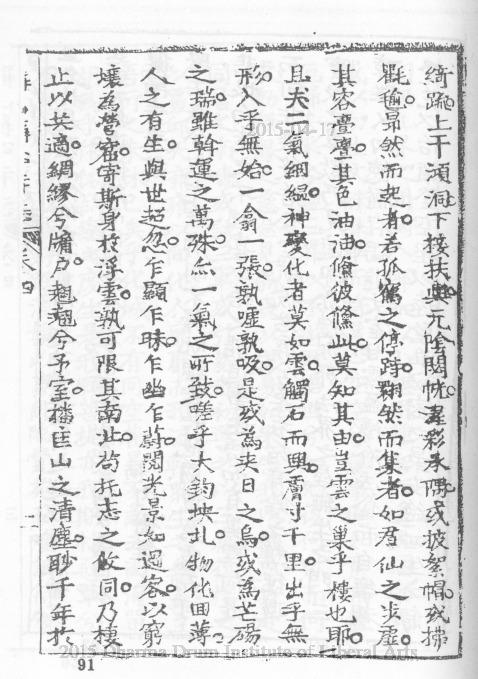 綺疏上干澒洞下接扶輿元陰闔帨澤彩承隅或披絮帽或拂
氍毹昻然而起者若孤鸞之停跱翩然而集者如群仙之步虛
其容亹亹其色油油倐彼儵此莫知其由豈雲之巢乎樓也耶
且夫二氣絪縕神變化者莫如雲觸石而興膚寸千里出乎無
形入乎無始一翕一張孰噓孰吸是或為夾日之烏或為芒碭
之瑞雖斡運之萬殊亦一氣之所致嗟乎大鈞坱圠物化回薄
人之有生與世超忽乍顯乍昧乍幽乍蔚閱光景如過客以穹
壤為蘧廬寄斯身於浮雲孰可限其南北苟托志之攸同乃棲
止以共適綢繆兮牖户翹翹兮予室播匡山之清塵眇千年於
卷四
2015-04-17
2015 Dharma Drum Institute of Liberal Arts
91